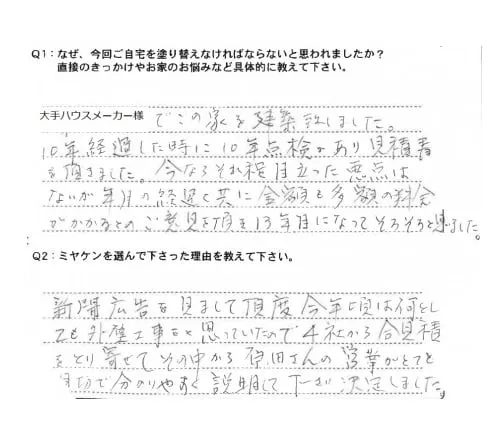 Q1：なぜ、今回ご自宅を塗り替えなければならないと思われましたか？
直接のきっかけやお家のお悩みなど具体的に教えて下さい。
大手ハウスメーカー様 でこの家を建築致しました。
10年経過した時に10年点検があり見積書
を頂きました。今ならそれ程目立った悪点は
ないが年月の経過と共に金額も多額の料金
がかかるとのご意見を頂き13年目になってそろそろと思いました。
Q2：ミヤケンを選んで下さった理由を教えて下さい。
新聞広告を見まして頂度今年頃は何とし
ても外壁工事をと思っていたので4社から合見積
をとり寄せてその中から さんの営業がとても
親切で分かりやすく説明して下さり決定しました。